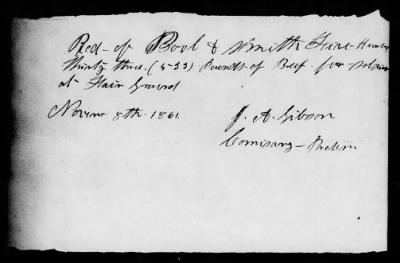 Recd- of Bool & Smith Five Hundred
thirty three (533) Pounds of Beef for soldiers
at Fair Ground
Novem 8th 1861
J. A. Gibson
Comisary-